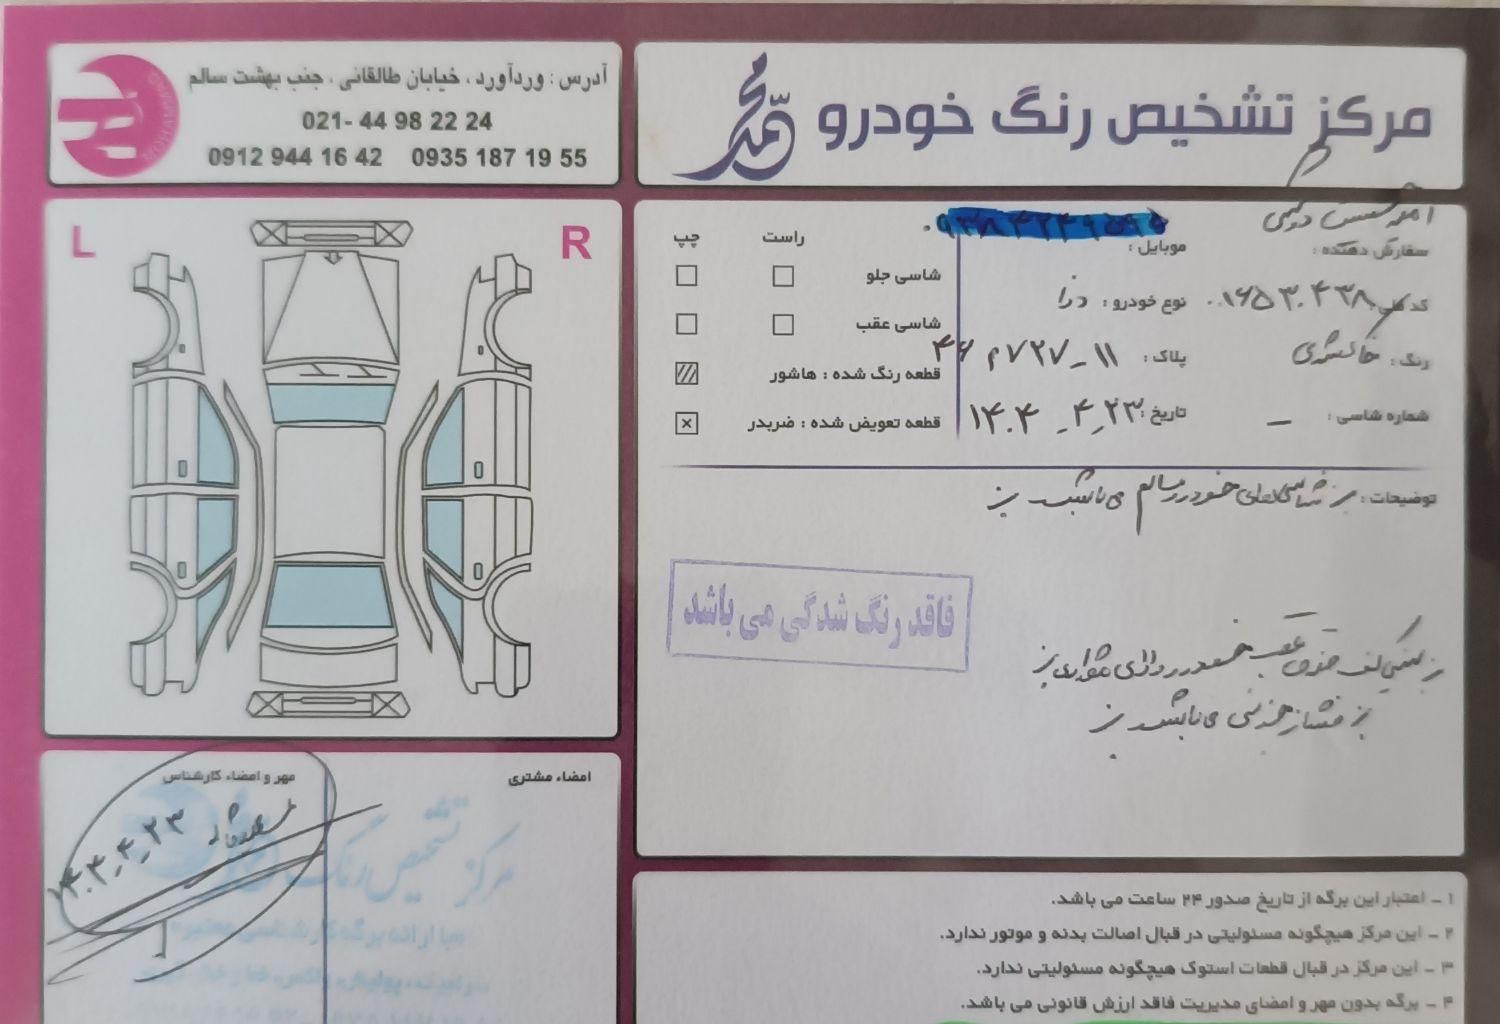 مرکز تشخیص رنگ خودرو محمد
آدرس : وردآورد ، خیابان طالقانی ، جنب بهشت سالم
021- 44 98 22 24
0912 944 16 42 0935 187 19 55
L
R
سفارش دهنده :
موبایل :
کد ملی : ۰۱۶۵۳۰۴۳۸
نوع خودرو : دنا
رنگ : خاکستری
پلاک : ۱۱ - ۷۲۷ م ۴۶
شماره شاسی : -
تاریخ : ۱۴۰۴-۴-۲۳
راست چپ
شاسی جلو
شاسی عقب
قطعه رنگ شده : هاشور
قطعه تعویض شده : ضربدر
توضیحات : شاسی های خودرو سالم می باشد
فاقد رنگ شدگی می باشد
سینی کف صندوق عقب خودرو دارای مقداری
فشار جزئی می باشد
امضاء مشتری
مهر و امضاء کارشناس
۱۴۰۴-۴-۲۳
مرکز تشخیص رنگ
با ارائه برگه کارشناسی معتبر
۱ - اعتبار این برگه از تاریخ صدور ۲۴ ساعت می باشد.
۲ - این مرکز هیچگونه مسئولیتی در قبال اصالت بدنه و موتور ندارد.
۳ - این مرکز در قبال قطعات استوک هیچگونه مسئولیتی ندارد.
۴ - برگه بدون مهر و امضای مدیریت فاقد ارزش قانونی می باشد.